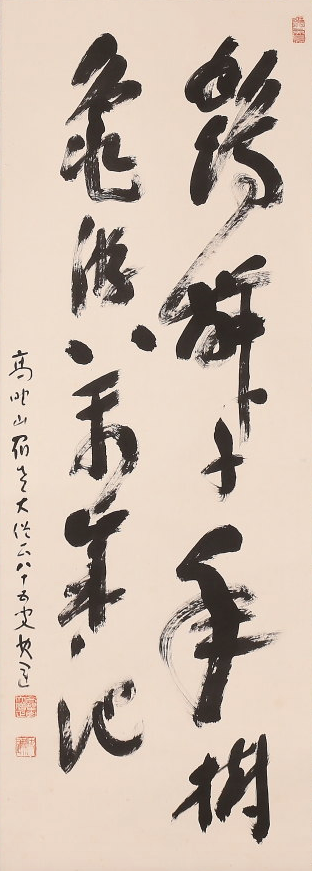 鶴舞千年樹
亀游萬年池
高野山宿老大僧正八十五叟